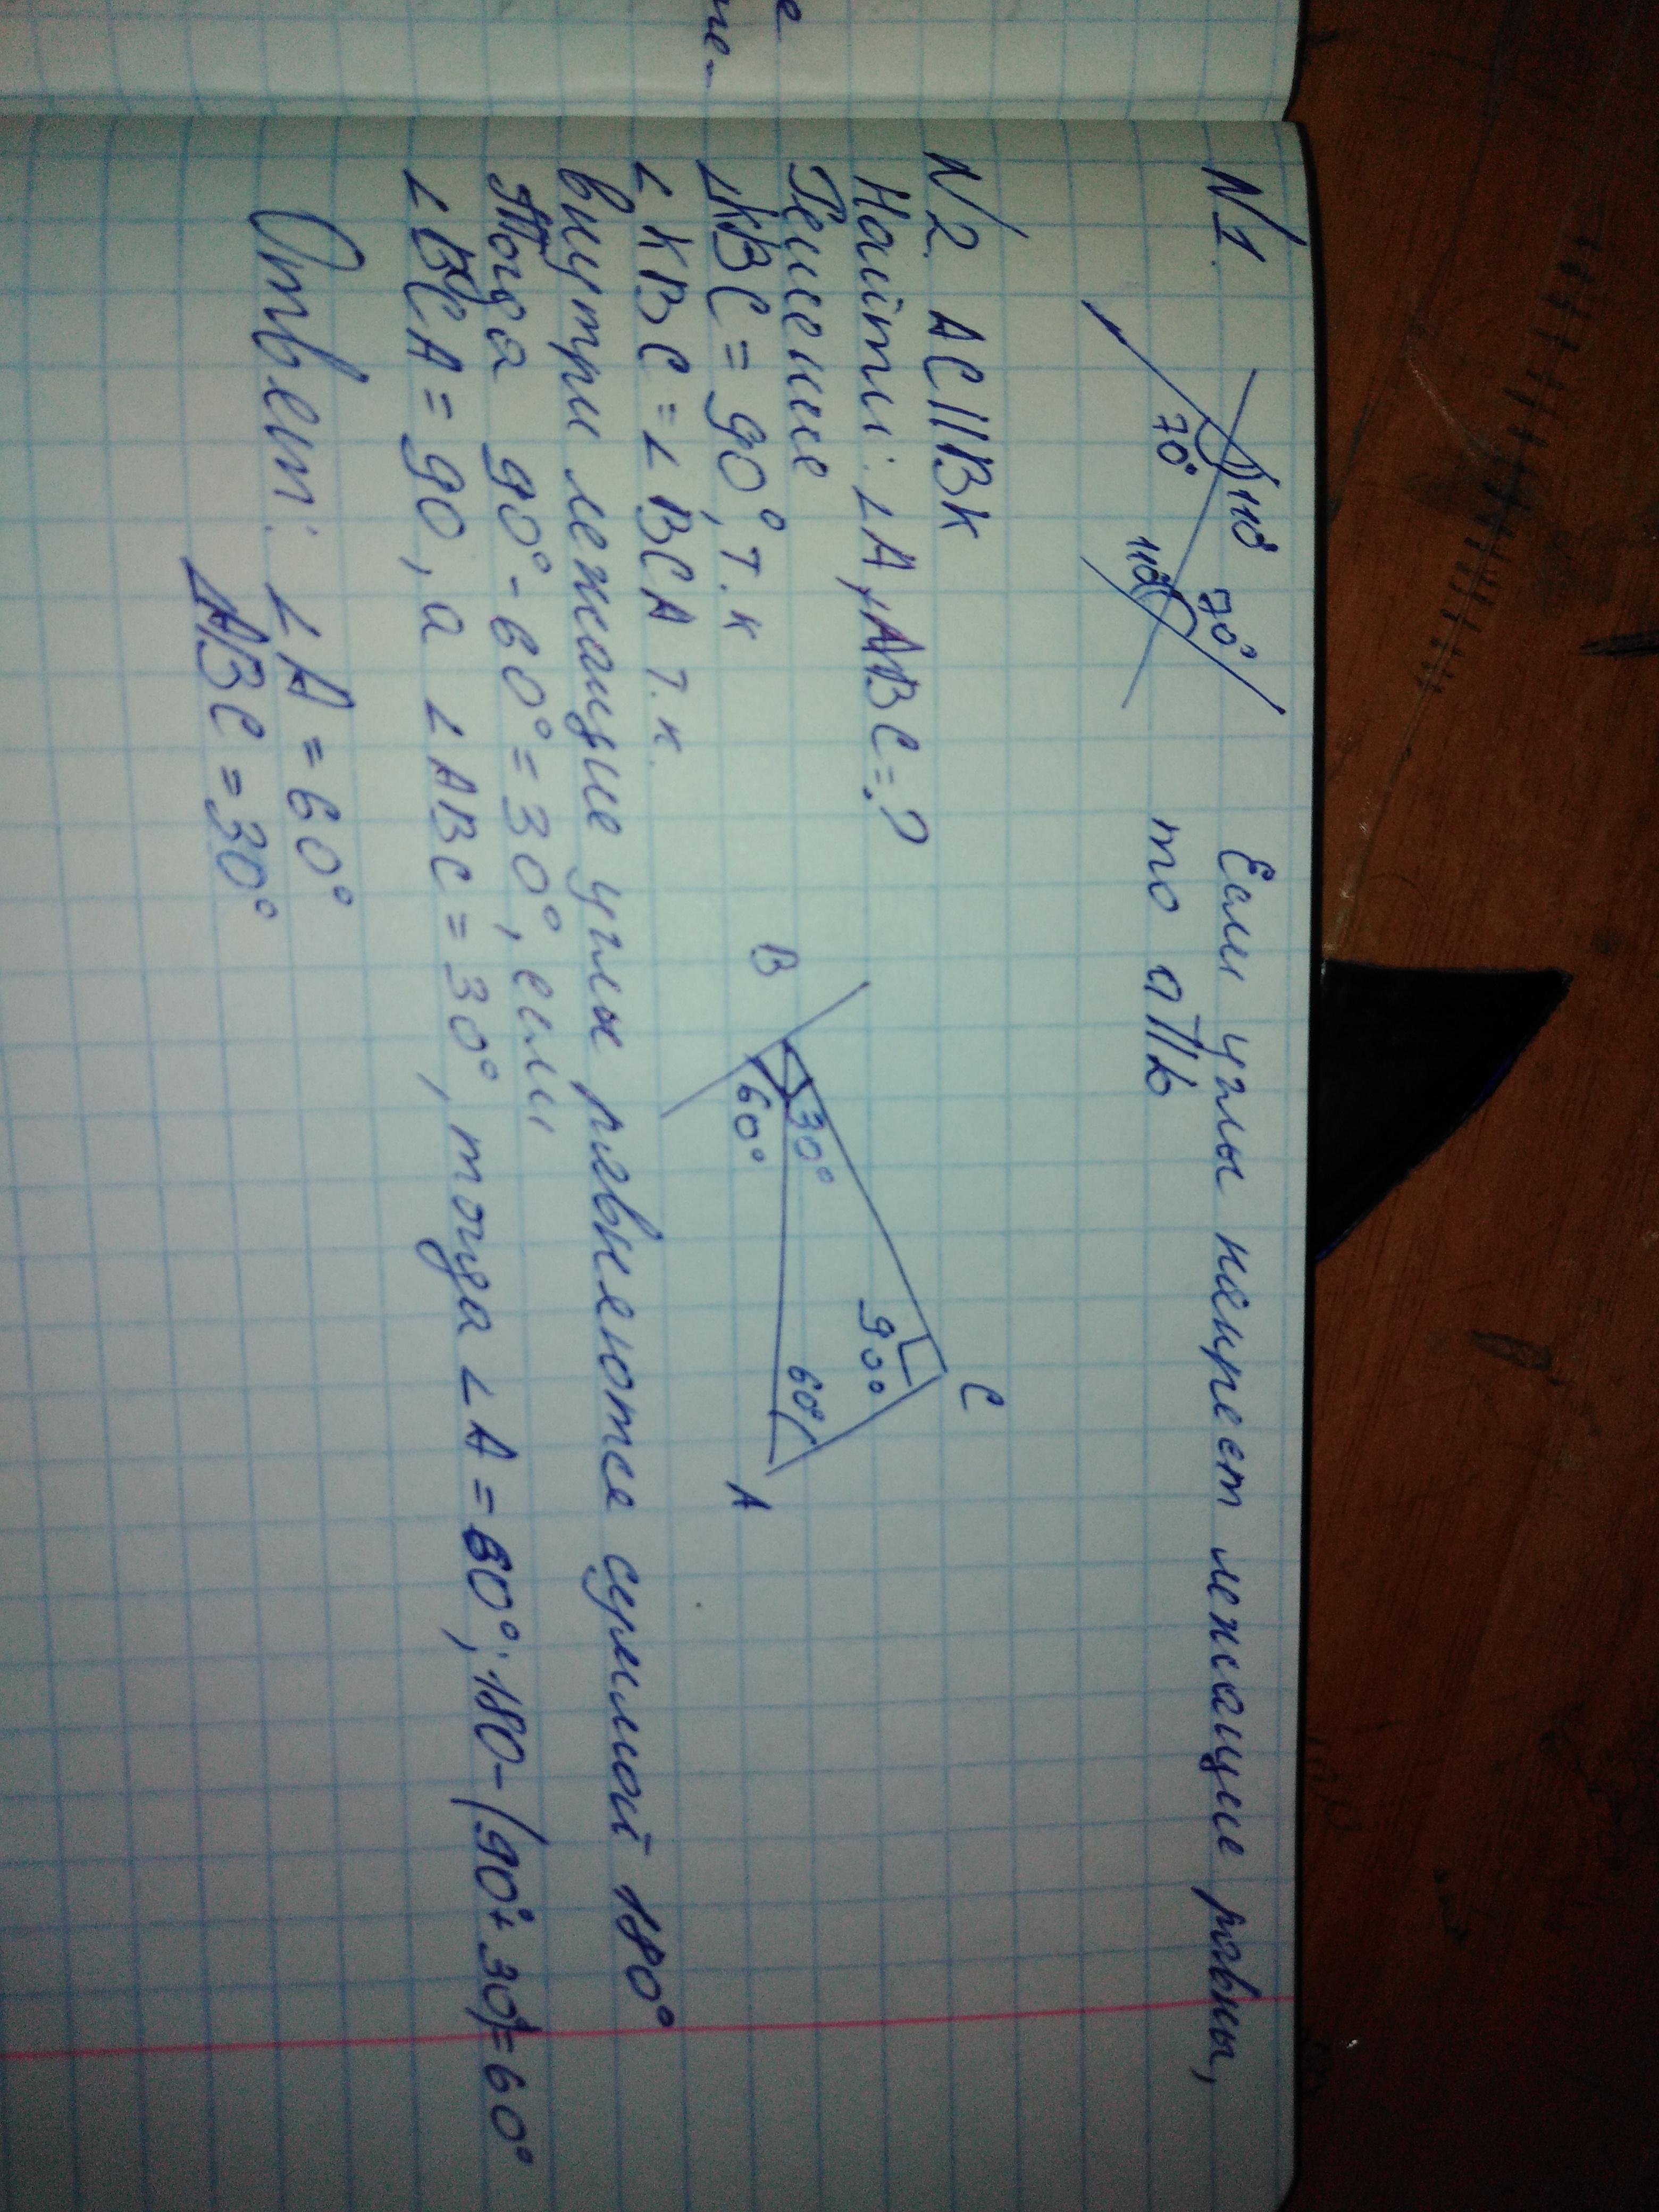 N1.
70° 110° 110° 70°
Если углы накрест лежащие равны,
то a||b
N2. AC||BK
Найти: ∠A, ∠ABC=?
Решение
∠KBC = 90°, т.к
∠KBC = ∠BCA т.к.
внутри лежащие углы равняются суммой 180°
Тогда 90°-60°=30°, если
∠BCA = 90, а ∠ABC = 30°, тогда ∠A = 60°, 180-(90°+30°)=60°
B 30° 60° C 90° 60° A
Ответ: ∠A = 60°
∠ABC = 30°